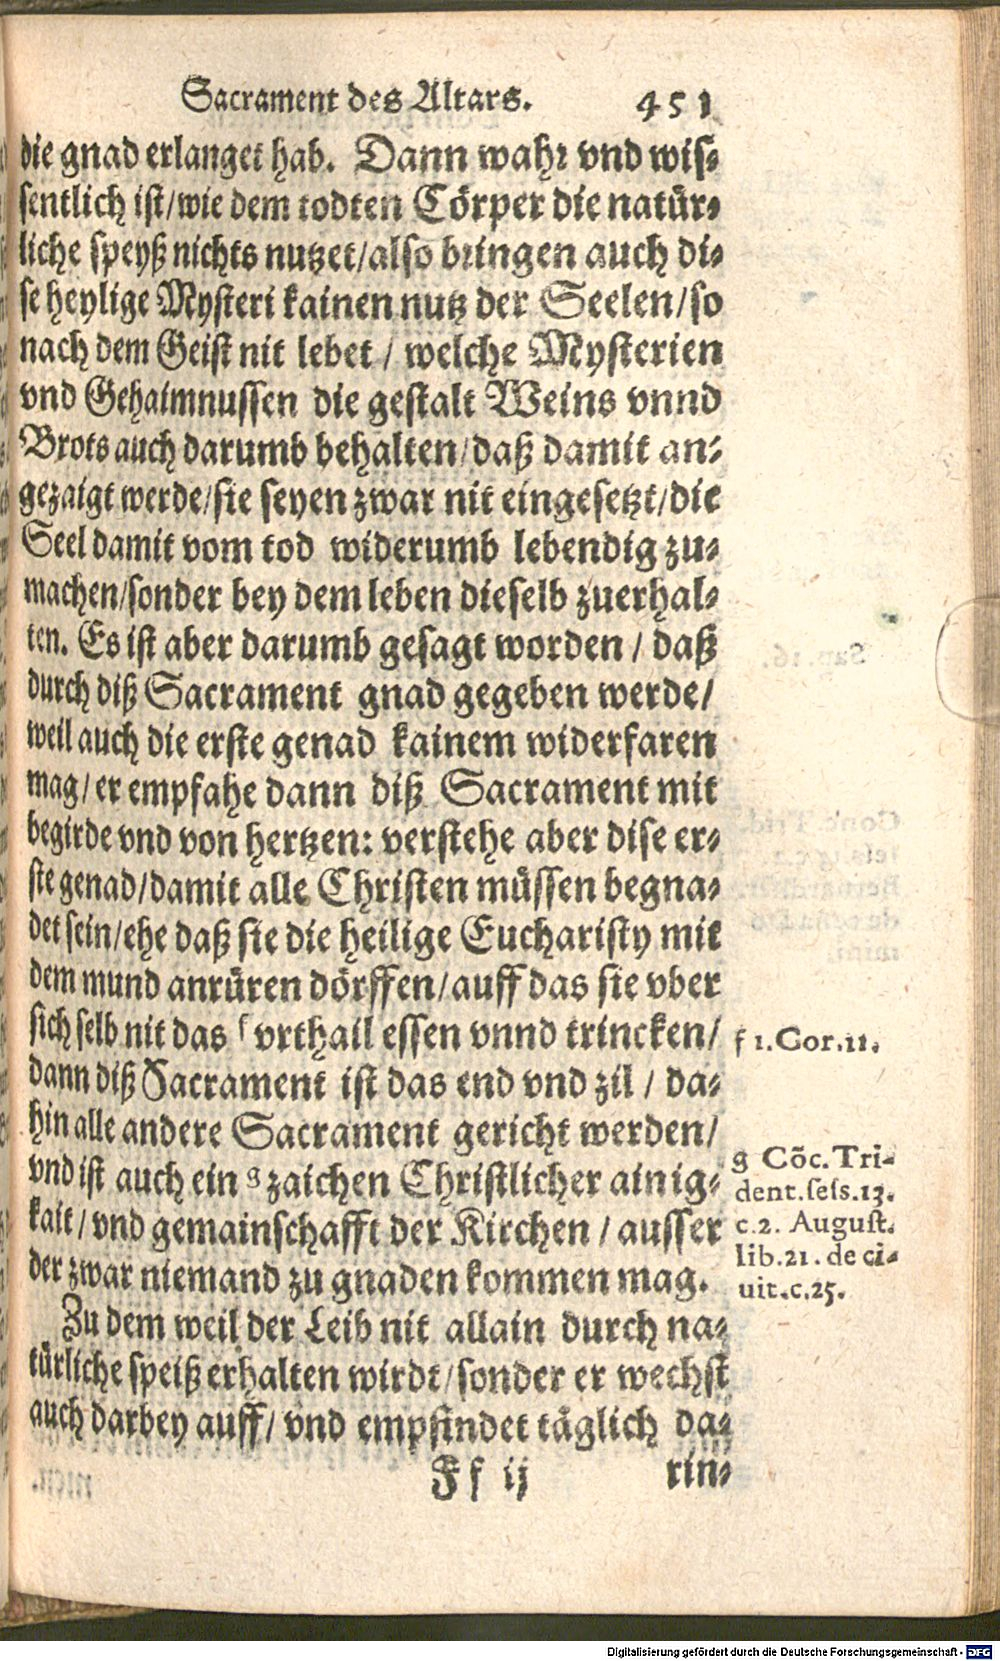 Sacrament des Altars. 451
die gnad erlanget hab. Dann wahr vnd wis-
sentlich ist/wie dem todten Cörper die natür-
liche speyß nichts nutzet/also bringen auch di-
se heylige Mysteri kainen nutz der Seelen/so
nach dem Geist nit lebet / welche Mysterien
vnd Gehaimnussen die gestalt Weins vnnd
Brots auch darumb behalten/daß damit an-
gezaigt werde/sie seyen zwar nit eingesetzt/die
Seel damit vom tod widerumb lebendig zu-
machen/sonder bey dem leben dieselb zuerhal-
ten. Es ist aber darumb gesagt worden / daß
durch diß Sacrament gnad gegeben werde/
weil auch die erste genad kainem widerfaren
mag/ er empfahe dann diß Sacrament mit
begirde vnd von hertzen: verstehe aber dise er-
ste genad/damit alle Christen müssen begna-
det sein/ehe daß sie die heilige Eucharisty mit
dem mund anrüren dörffen/auff das sie vber
sich selb nit das f vrthail essen vnnd trincken/
f 1.Cor.11.
dann diß Sacrament ist das end vnd zil / da-
hin alle andere Sacrament gericht werden/
vnd ist auch ein g zaichen Christlicher ainig-
kait/vnd gemainschafft der Kirchen / ausser
der zwar niemand zu gnaden kommen mag.
g Cõc.Tri-
dent.sess.13.
c.2. August.
lib.21.de ci-
uit.c.25.
Zu dem weil der Leib nit allain durch na-
türliche speiß erhalten wirdt/sonder er wechst
auch darbey auff/ vnd empfindet täglich da-
Ff ij rin-
Digitalisierung gefördert durch die Deutsche Forschungsgemeinschaft - DFG